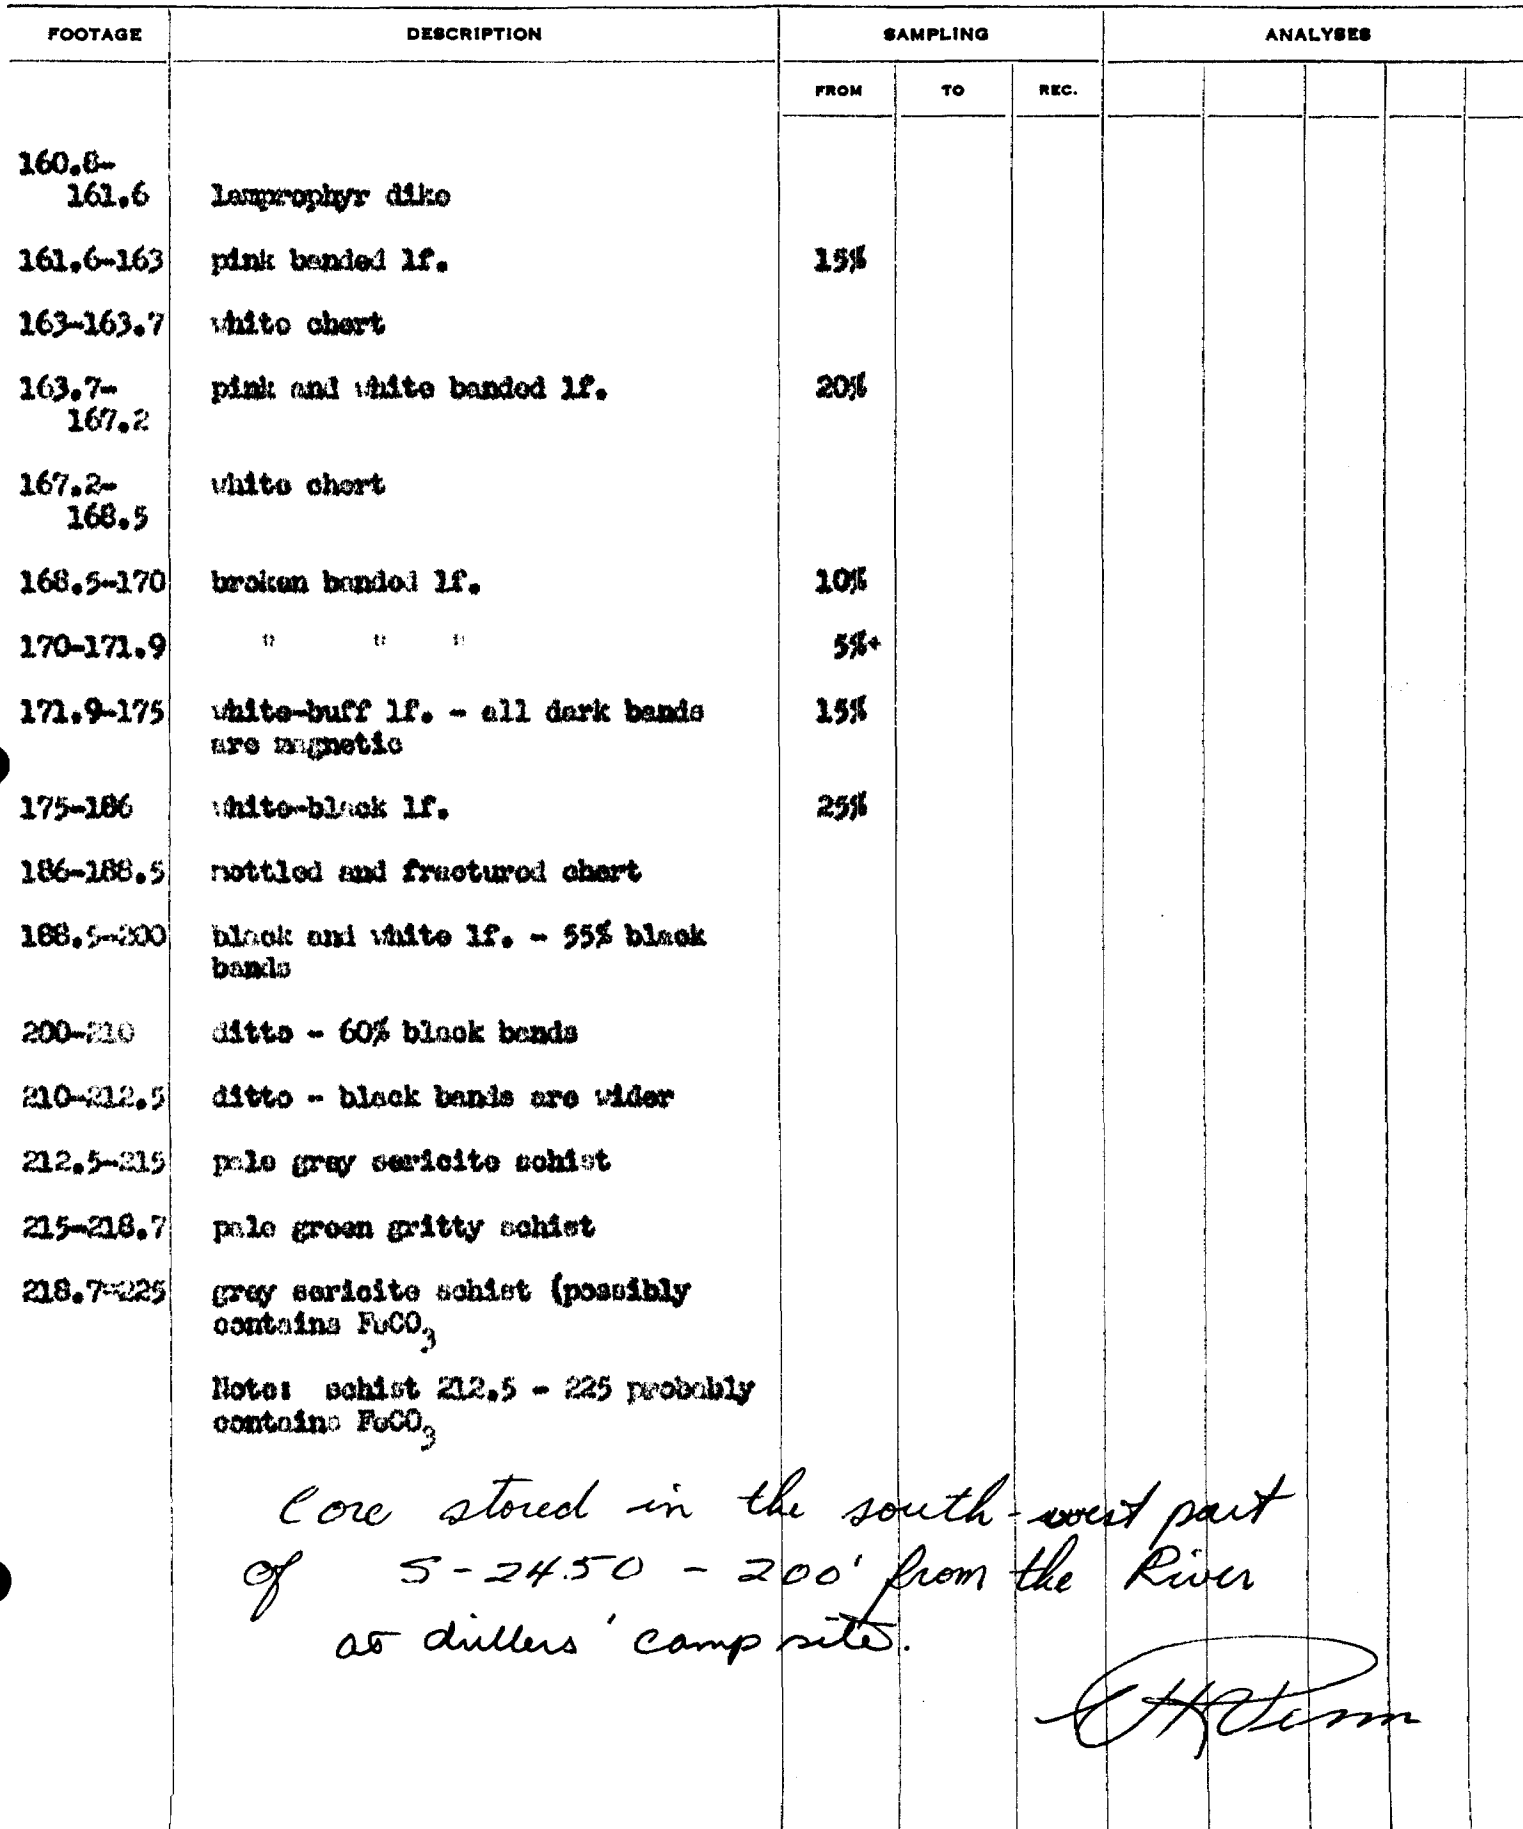 FOOTAGE DESCRIPTION SAMPLING ANALYSES
FROM TO REC.
160.8-
161.6 lamprophyr dike
161.6-163 pink banded lf. 15%
163-163.7 white chert
163.7- pink and white banded lf. 20%
167.2
167.2- white chert
168.5
168.5-170 broken banded lf. 10%
170-171.9 " " " 5%+
171.9-175 white-buff lf. - all dark bands 15%
are magnetic
175-186 white-black lf. 25%
186-188.5 mottled and fractured chert
188.5-200 black and white lf. - 55% black
bands
200-210 ditto - 60% black bands
210-212.5 ditto - black bands are wider
212.5-215 pale gray sericite schist
215-218.7 pale green gritty schist
218.7-225 gray sericite schist (possibly
contains FeCO3
Note: schist 212.5 - 225 probably
contains FeCO3
Core stored in the south-west part
of S-2450 - 200' from the River
at drillers' camp site.